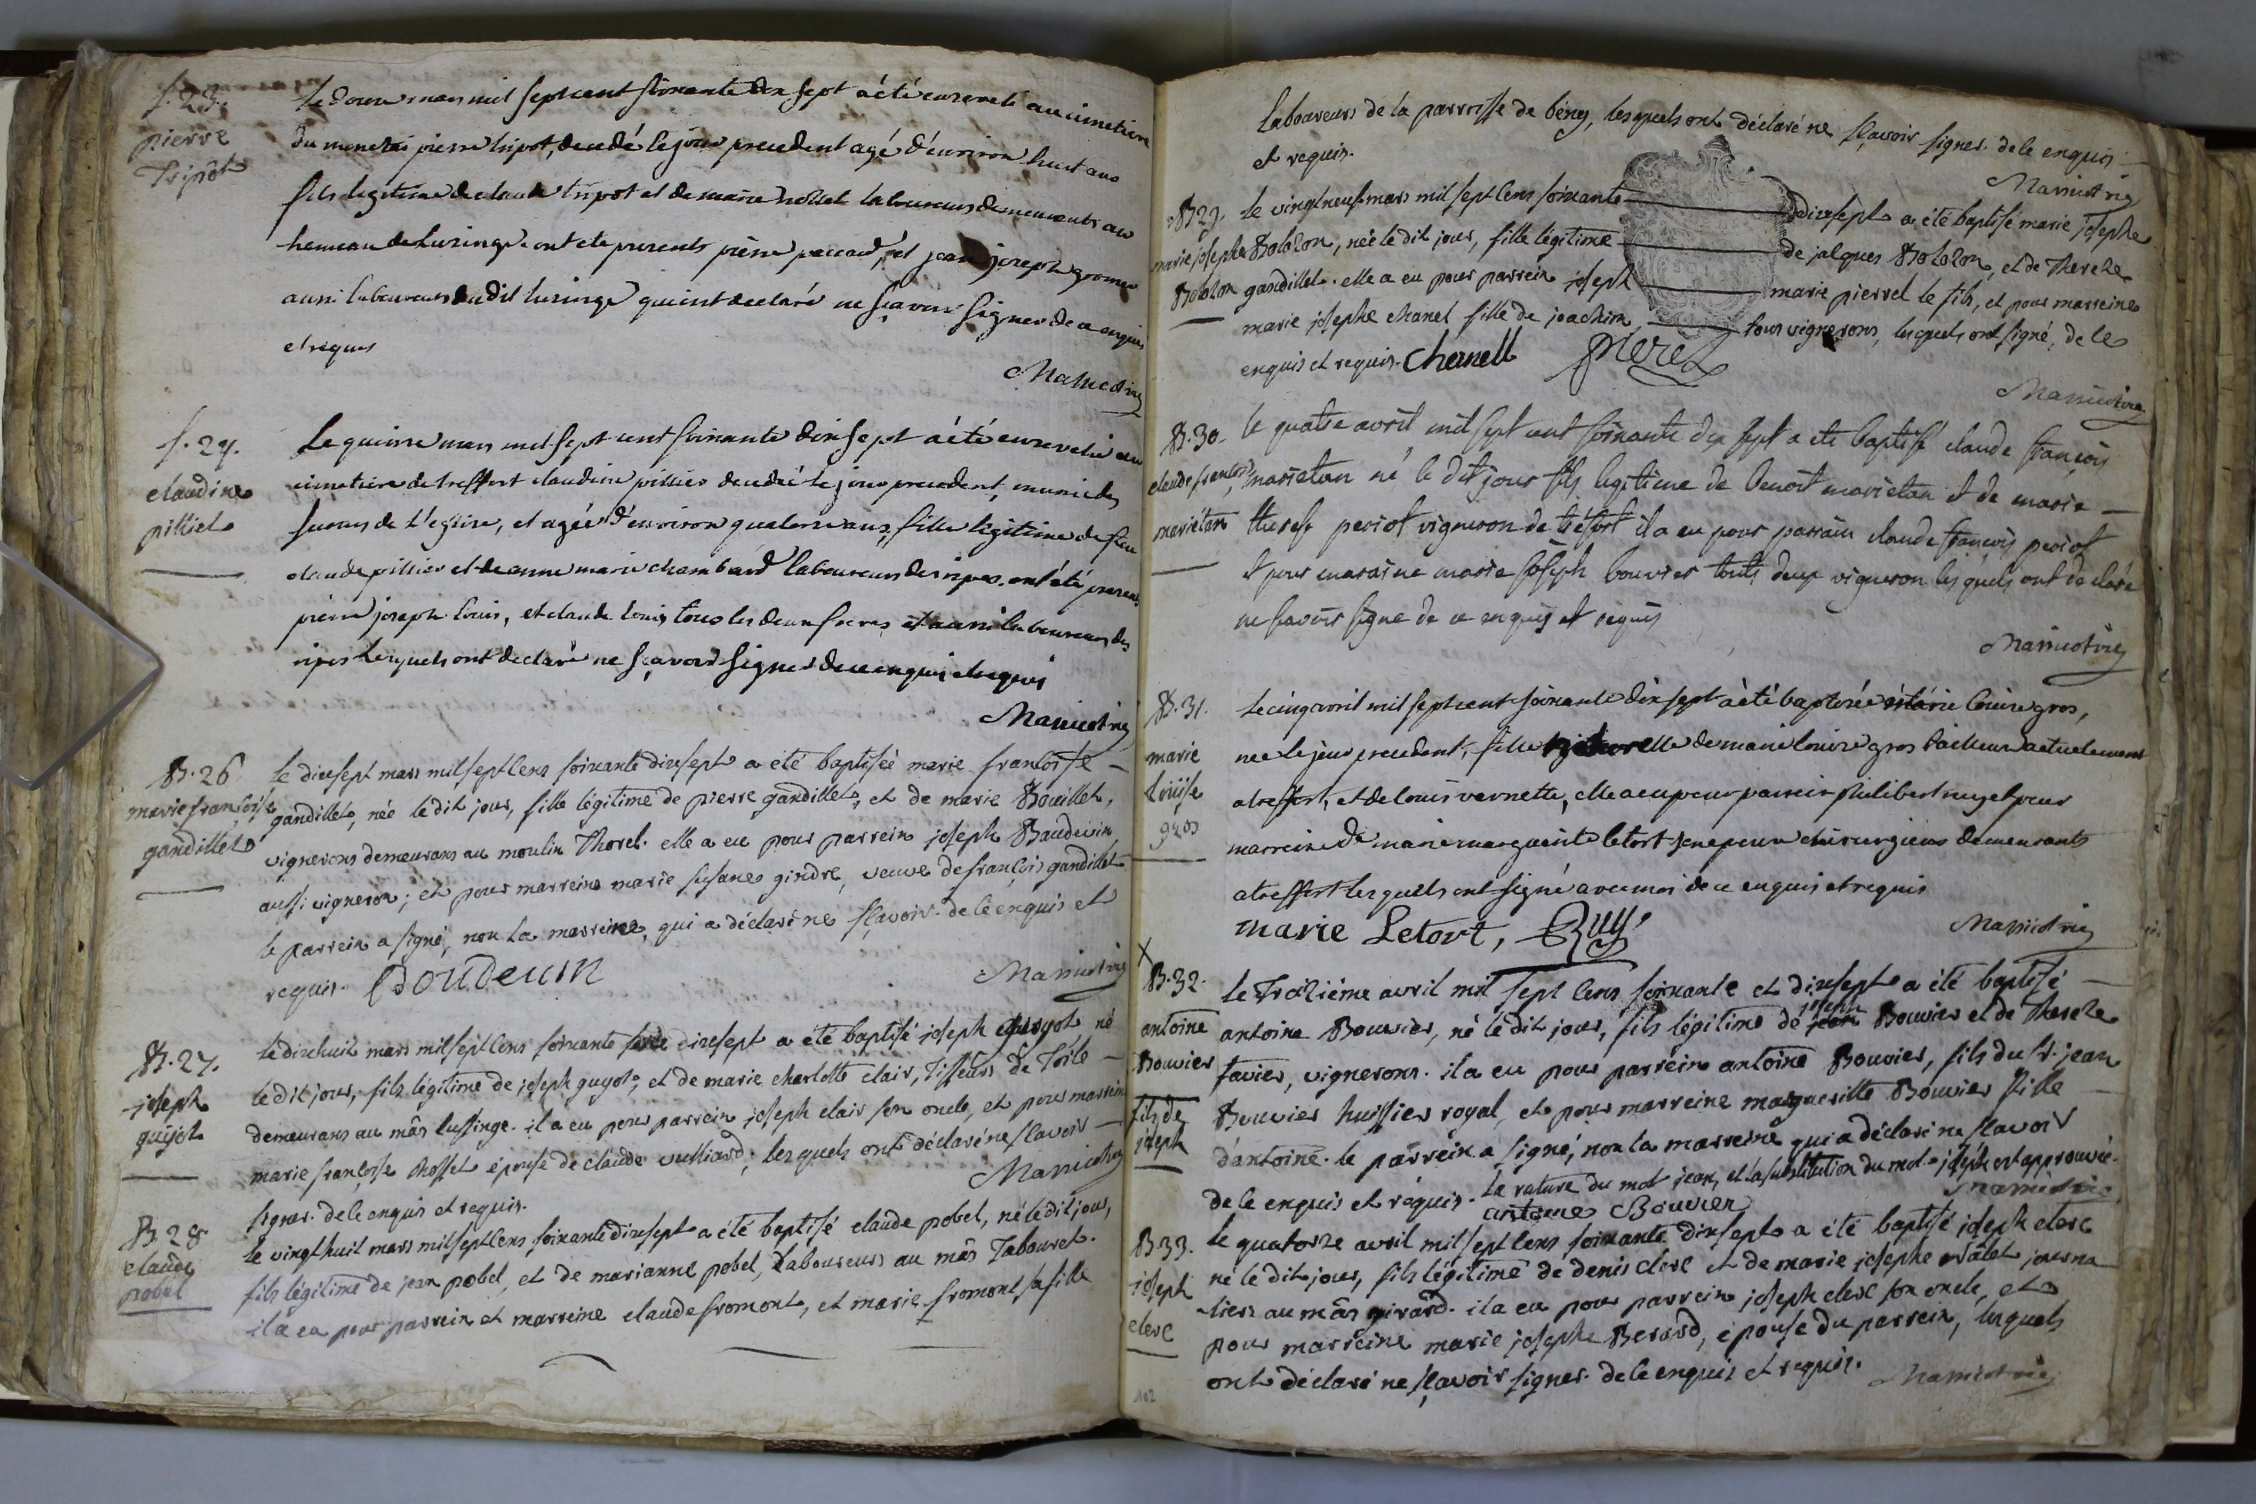 S. 23.
pierre
Tripot
Le douze mars mil sept cent soixante dix sept a été enseveli au cimetiere
pierre tripot, decedé le jour precedent agé d'environ huit ans
fils legitime de claude tripot et de marie laboureurs demeurants au
hemeau de lusinge. ont ete presents pierre paccard, et jean joseph
aussi laboureurs dudit lusinge qui ont declaré ne sçavoir signer de ce enquis
et requis
S. 24.
claudine
pillier
Le quinze mars mil sept cent soixante dix sept a été ensevelie au
cimetiere de treffort claudine pillier decedée le jour precedent, munie des
de l'eglise, et agée d'environ quatorze ans, fille legitime de feu
claude pillier et de anne marie chambard laboureurs des ripes. ont été presents
pierre joseph louis, et claude louis tous les deux freres et aussi laboureurs des
ripes lesquels ont declaré ne sçavoir signer de ce enquis et requis
B. 26
marie françoise
gandillet
le dixsept mars mil sept cens soixante dixsept a été baptisée marie françoise
gandillet, née le dit jour, fille légitime de pierre gandillet, et de marie Bouillet,
vignerons demeurans au moulin thorel. elle a eu pour parrein joseph Baudevin
aussi vigneron; et pour marreine marie susane gindre, veuve de françois gandillet
le parrein a signé, non la marreine, qui a déclaré ne sçavoir. de ce enquis et
requis.
B. 27.
joseph
guyot
le dixhuit mars mil sept cens soixante dixsept a été baptisé joseph guyot né
le dit jour, fils légitime de joseph guyot, et de marie charlotte clair, tisseurs de toile
demeurans au mâs lussinge. il a eu pour parrein joseph clair son oncle, et pour marreine
marie françoise chosset épouse de claude vulliard; lesquels ont déclaré ne sçavoir
signer. de ce enquis et requis.
B. 28
claude
pobel
le vingt huit mars mil sept cens soixante dixsept a été baptisé claude pobel, né le dit jour,
fils légitime de jean pobel, et de marianne pobel, laboureurs au mâs Tabouret.
il a eu pour parrein et marreine claude fromont, et marie fromont, sa fille
laboureurs de la parroisse de bény, lesquels ont déclaré ne sçavoir signer. de ce enquis
et requis.
B 29.
marie josephe
Bolozon
le vingt neuf mars mil sept cens soixante dixsept a été baptisé marie josephe
Bolozon, née le dit jour, fille légitime de jacques Bolozon, et de therese
gandillet. elle a eu pour parrein joseph marie pierrel le fils, et pour marreine
marie josephe chanel fille de joachim, tous vignerons, lesquels ont signé, de ce
enquis et requis. Chanell
B. 30.
claude françois
marietan
le quatre avril mil sept cent soixante dix sept a ete baptisé claude françois
marietan né le dit jour fils legitime de benoit marietan et de marie
therese periot vigneron de tréfort il a eu pour parrain claude françois periot
et pour maraine marie joseph bouvier touts deux vigneron lesquels ont declaré
ne savoir signe de ce enquis et requis
B. 31.
marie
louise
gros
Le cinq avril mil sept cent soixante dix sept a été baptisée marie louise gros,
née le jour precedent, fille de marie louise gros tailleuse actuelement
a treffort, et de louis vernette, elle a eu pour parrein philibert ruy et pour
marreine marie marguerite letort chirurgiens demeurants
a treffort lesquels ont signé avec moi de ce enquis et requis
marie Letort, Ruy
X
B. 32.
antoine
Bouvier
fils de
joseph
Le treizième avril mil sept cens soixante et dixsept a été baptisé
antoine Bouvier, né le dit jour, fils légitime de joseph Bouvier et de therese
favier, vignerons. il a eu pour parrein antoine Bouvier, fils du Sr. jean
Bouvier huissier royal, et pour marreine marguerite Bouvier fille
d'antoine. le parrein a signé, non la marreine qui a déclaré ne sçavoir
de ce enquis et requis. la rature du mot jean, et la substitution du mot joseph est approuvée.
antoine Bouvier
B 33.
joseph
clerc
le quatorze avril mil sept cens soixante dixsept a été baptisé joseph clerc
né le dit jour, fils légitime de denis clerc et de marie josephe valet journa
liers au mâs girard. il a eu pour parrein joseph clerc son oncle, et
pour marreine marie josephe Berard, épouse du parrein, lesquels
ont déclaré ne sçavoir signer. de ce enquis et requis.
102